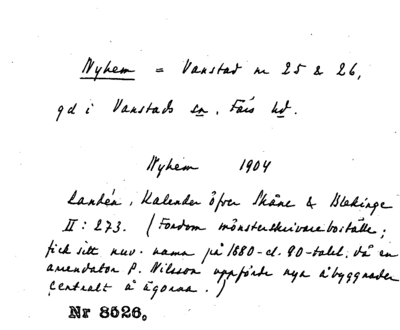 Nyhem = Vanstad nr 25 & 26,
gd i Vanstads sn, Färs hd.
Nyhem 1904
Sandén, Kalender öfver Skåne & Blekinge
II : 273. (Fordom mönsterskrivareboställe;
fick sitt nuv. namn på 1880- el. 90-talet, då en
arrendator P. Nilsson uppförde nya åbyggnader
centralt å ägorna.)
Nr 8526.